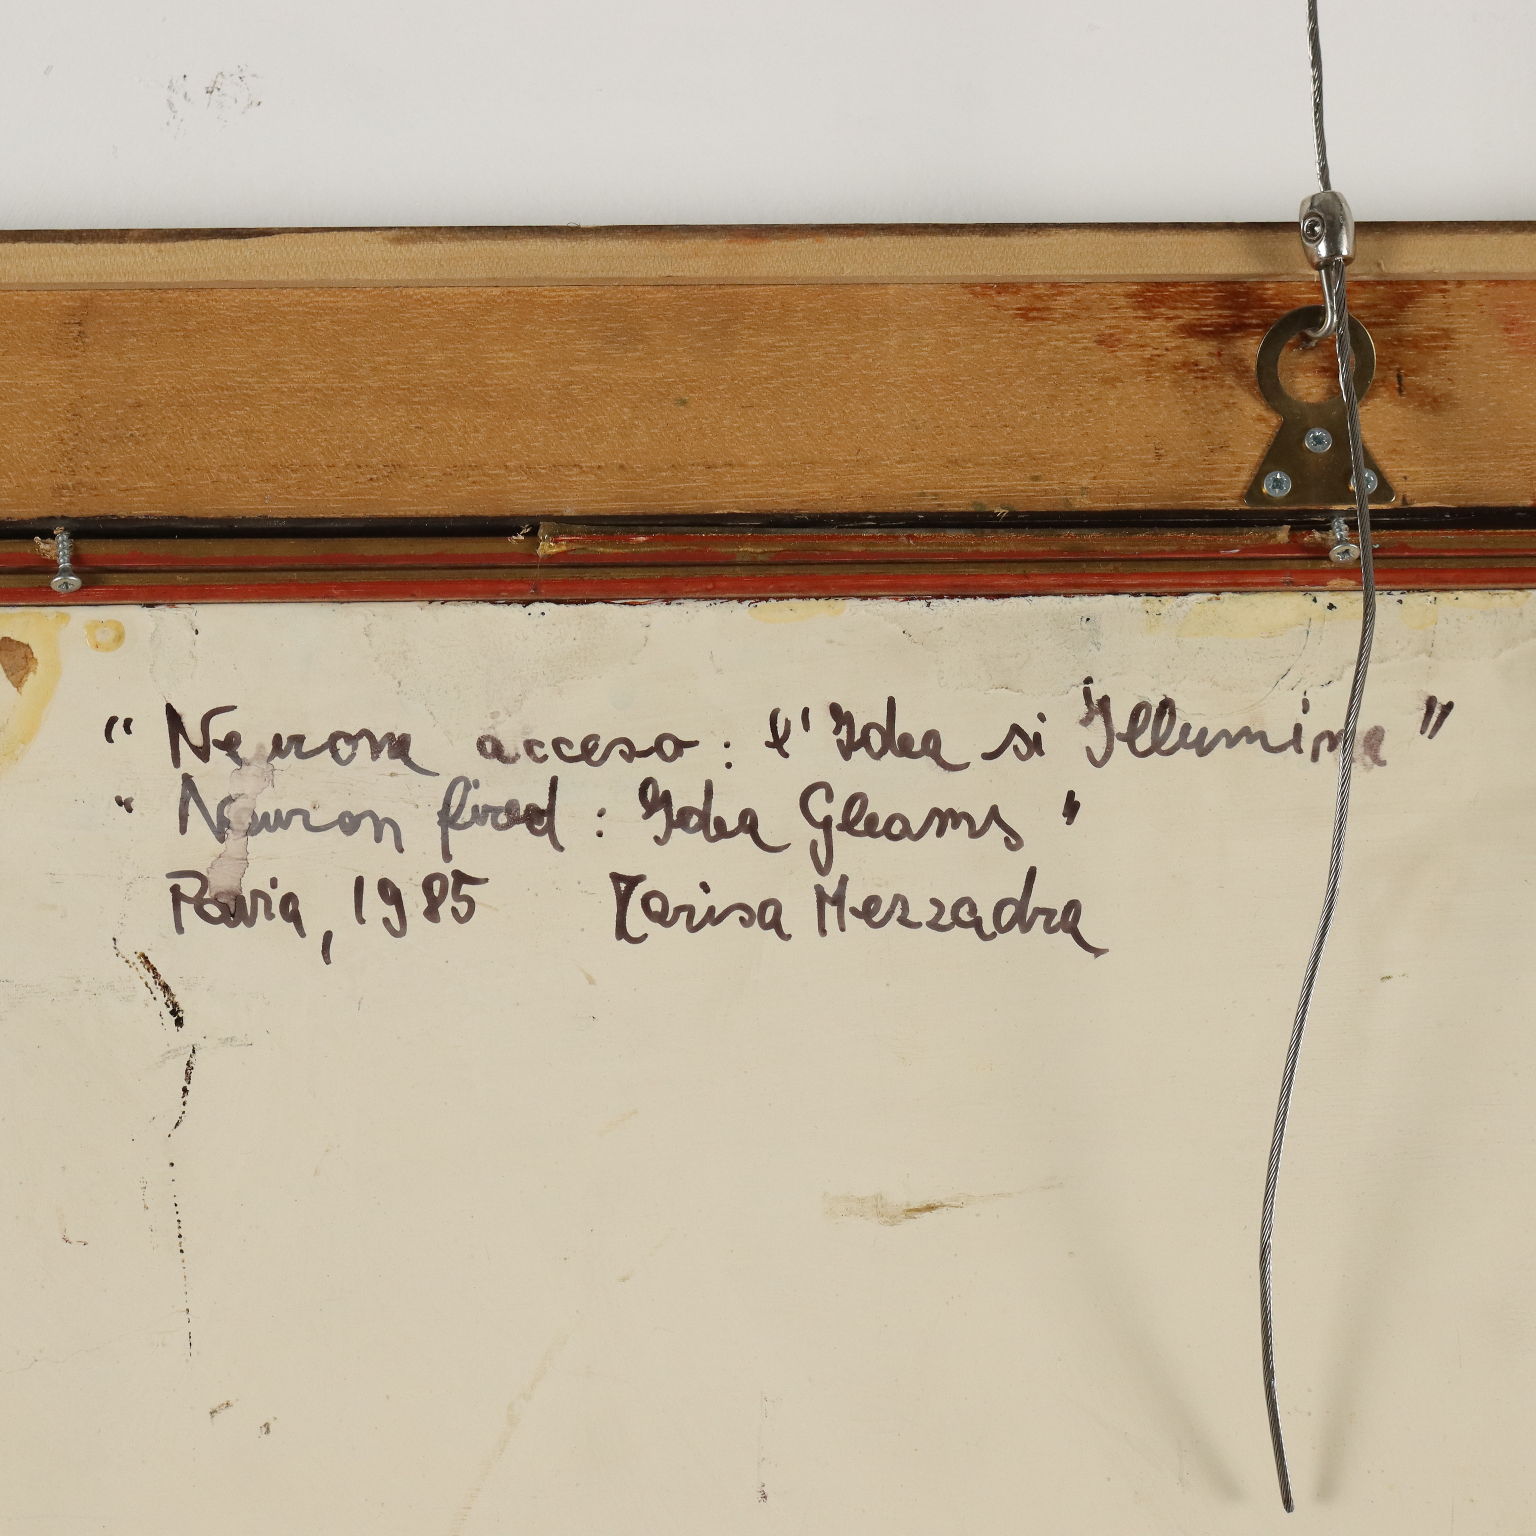 "Neurone acceso: l'Idea si Illumina"
"Neuron fired: Idea Gleams"
Pavia, 1985 Marisa Mezzadra